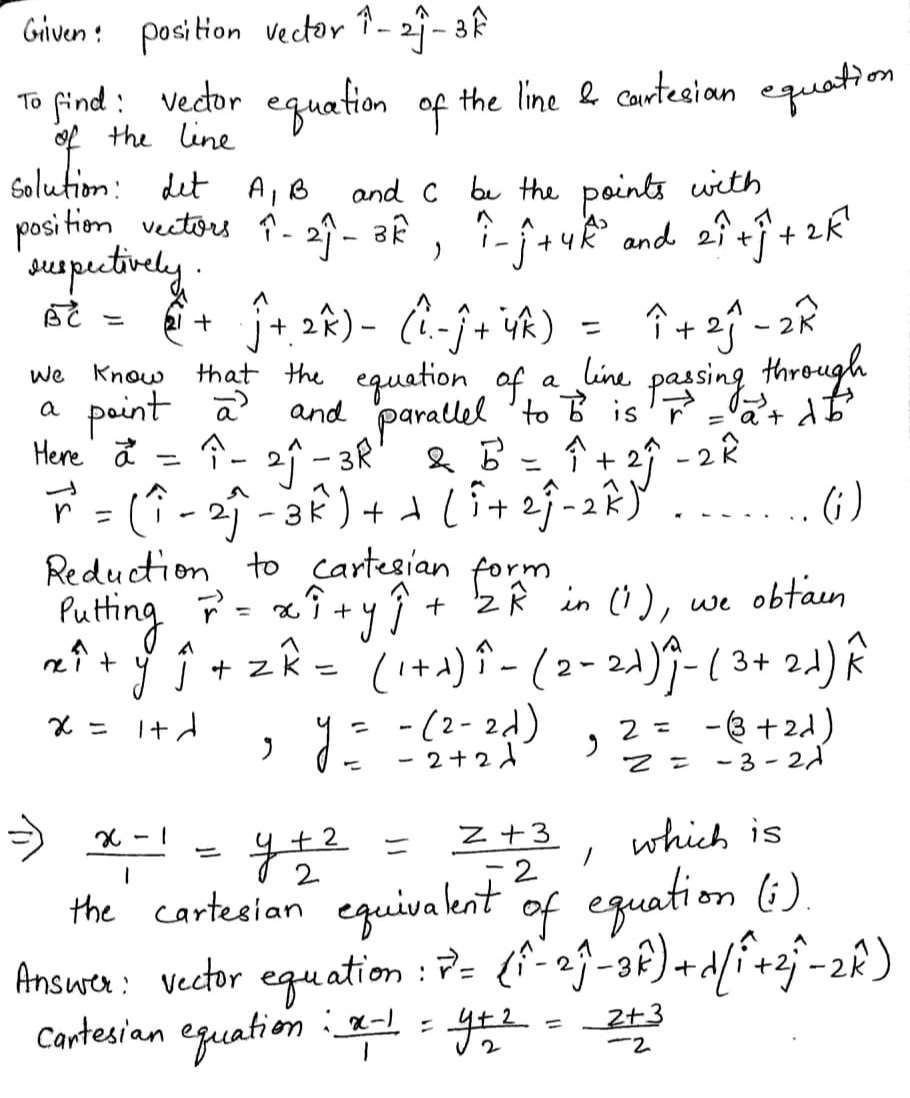 Given: position vector î - 2ĵ - 3k̂
To find: vector equation of the line & cartesian equation
of the line
Solution: Let A, B and C be the points with
position vectors î - 2ĵ - 3k̂, î - ĵ + 4k̂ and 2î + ĵ + 2k̂
respectively.
BC⃗ = (2î + ĵ + 2k̂) - (î - ĵ + 4k̂) = î + 2ĵ - 2k̂
we know that the equation of a line passing through
a point a⃗ and parallel to b⃗ is r⃗ = a⃗ + λb⃗
Here a⃗ = î - 2ĵ - 3k̂ & b⃗ = î + 2ĵ - 2k̂
r⃗ = (î - 2ĵ - 3k̂) + λ(î + 2ĵ - 2k̂) ........(i)
Reduction to cartesian form
Putting r⃗ = xî + yĵ + zk̂ in (i), we obtain
xî + yĵ + zk̂ = (1+λ)î - (2-2λ)ĵ - (3+2λ)k̂
x = 1+λ , y = -(2-2λ) , z = -(3+2λ)
= -2+2λ z = -3-2λ
⇒ (x-1)/1 = (y+2)/2 = (z+3)/-2 , which is
the cartesian equivalent of equation (i).
Answer: vector equation : r⃗ = (î - 2ĵ - 3k̂) + λ(î + 2ĵ - 2k̂)
Cartesian equation : (x-1)/1 = (y+2)/2 = (z+3)/-2